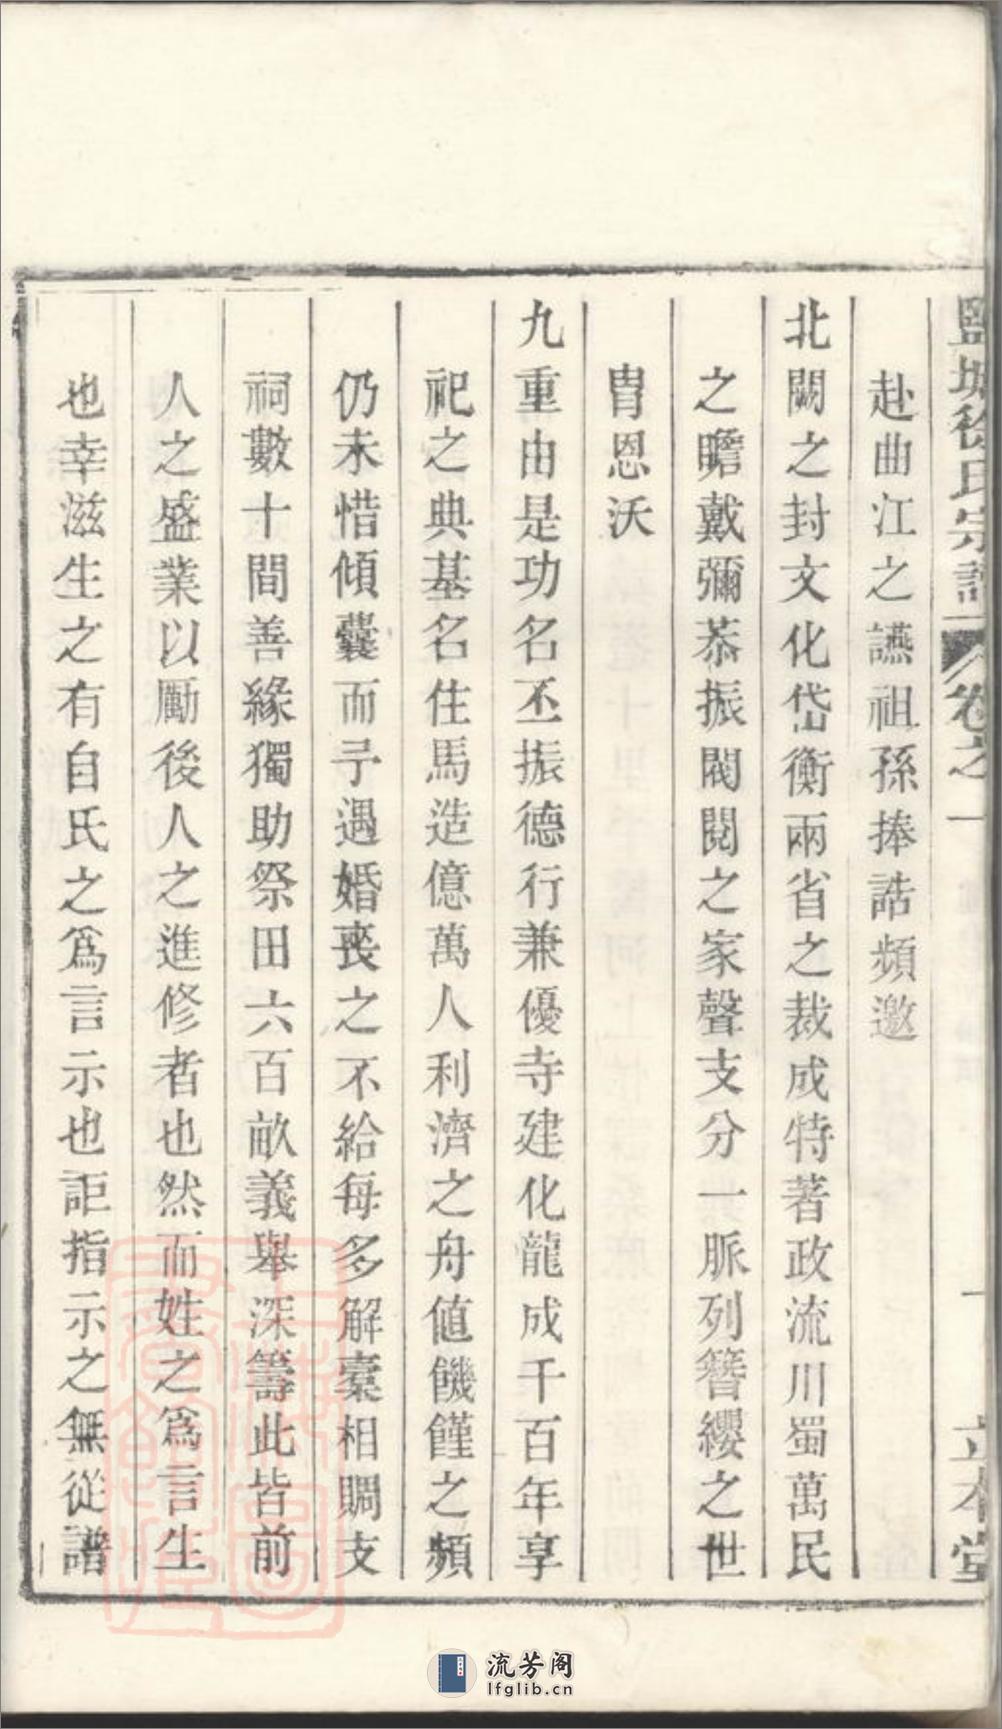 鹽城徐氏宗譜 卷之一 一 立本堂
赴曲江之讌祖孫捧誥頻邀
北闕之封文化岱衡兩省之裁成特著政流川蜀萬民
之瞻戴彌恭振閥閱之家聲支分一脈列簪纓之世
胄恩沃
九重由是功名丕振德行兼優寺建化龍成千百年享
祀之典基名住馬造億萬人利濟之舟值饑饉之頻
仍未惜傾囊而予遇婚喪之不給每多解橐相賙支
祠數十間善緣獨助祭田六百畝義舉深籌此皆前
人之盛業以勵後人之進修者也然而姓之爲言生
也幸滋生之有自氏之爲言示也詎指示之無從譜
流芳阁
lfglib.cn